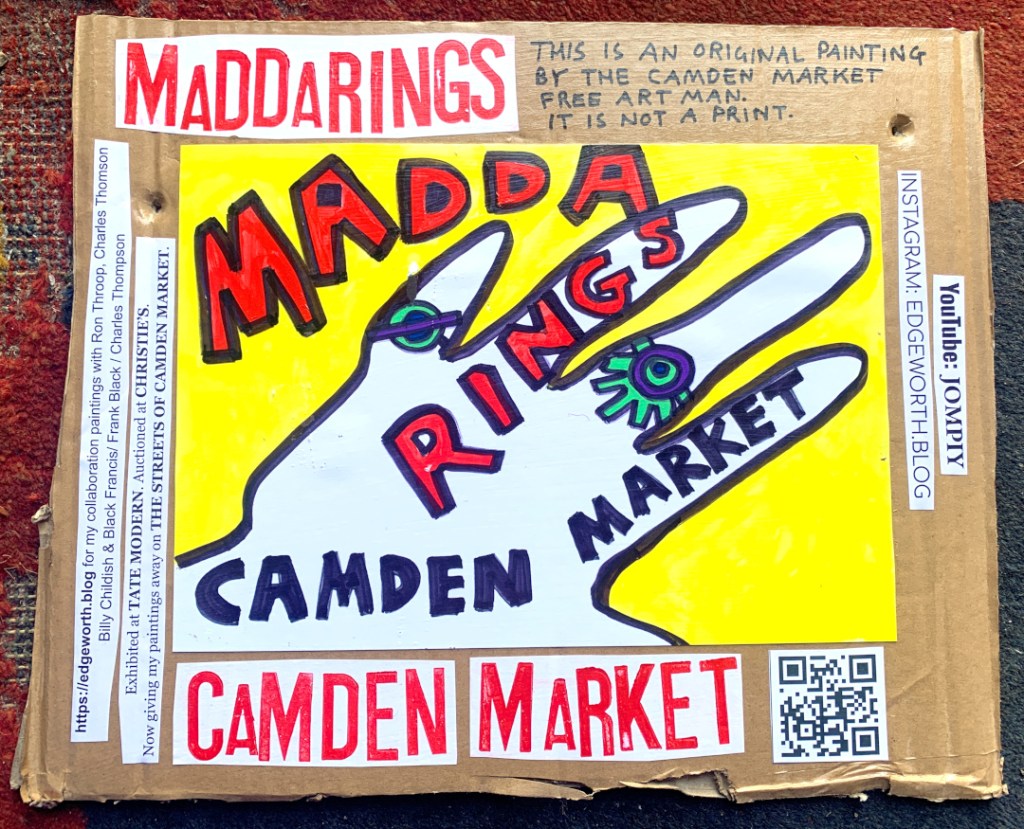 MADDARINGS
THIS IS AN ORIGINAL PAINTING
BY THE CAMDEN MARKET
FREE ART MAN.
IT IS NOT A PRINT.
https://edgeworth.blog for my collaboration paintings with Ron Throop, Charles Thomson
Billy Childish & Black Francis/ Frank Black / Charles Thompson
Exhibited at TATE MODERN. Auctioned at CHRISTIE'S.
Now giving my paintings away on THE STREETS OF CAMDEN MARKET.
MADDA
RINGS
CAMDEN
MARKET
YouTube: JOMPIY
INSTAGRAM: EDGEWORTH.BLOG
CAMDEN MARKET